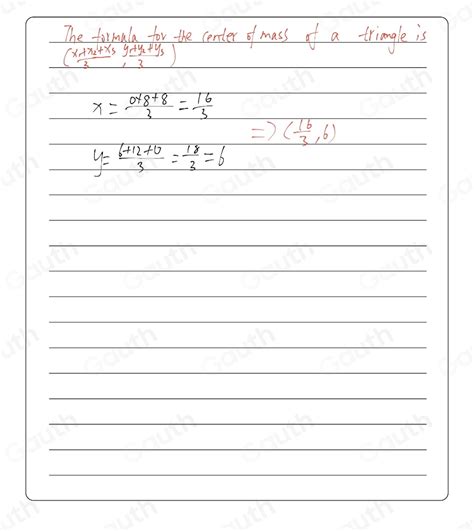 The formula for the center of mass of a triangle is
(x₁+x₂+x₃/3, y₁+y₂+y₃/3)
x = 0+8+8/3 = 16/3
=> (16/3, 6)
y = 6+12+0/3 = 18/3 = 6
Gauth